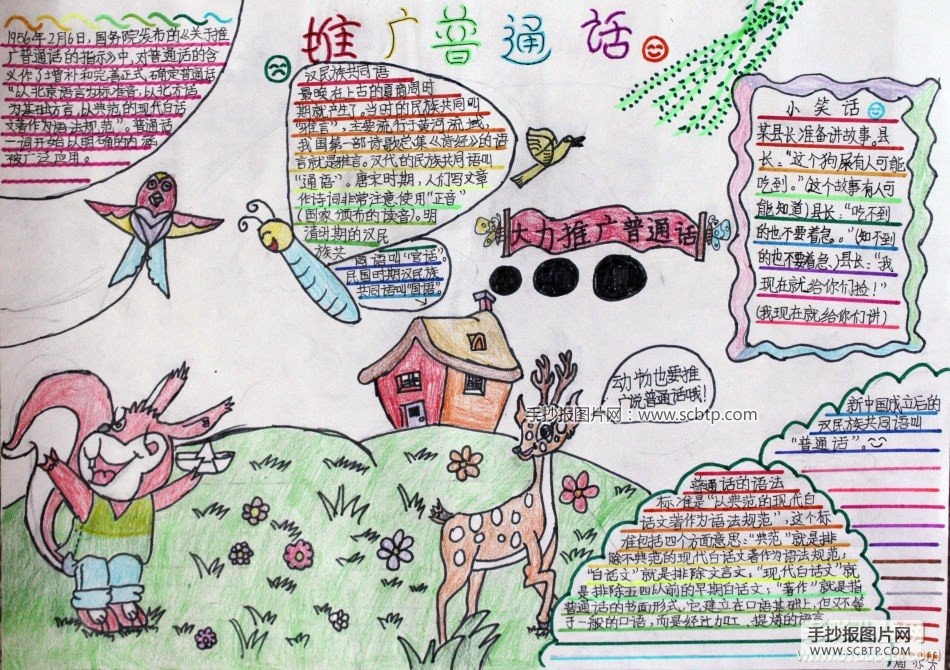 推广普通话
1956年2月6日,国务院发布的《关于推
广普通话的指示》中,对普通话的含
义作了增补和完善正式,确定普通话
“以北京语言为标准音,以北方话
为基础方言,以典范的现代白话
文著作为语法规范”。普通话
一词开始以明确的内涵
被广泛应用。
汉民族共同语
最晚在上古的夏商周时
期就产生了。当时的民族共同叫
“雅言”,主要流行于黄河流域,
我国第一部诗歌总集《诗经》的语
言就是雅言。汉代的民族共同语叫
“通语”。唐宋时期,人们写文章
作诗词非常注意使用“正音”
(国家颁布的读音)。明
清时期的汉民
族共
同语叫“官话”。
民国时期汉民族
共同语叫“国语”。
大力推广普通话
小笑话
某县长准备讲故事。县
长:“这个狗屎有人可能
吃到。”(这个故事有人可
能知道)县长:“吃不到
的也不要着急。”(知不到
的也不要着急)县长:“我
现在就给你们捡!”
(我现在就给你们讲)
动物也要推
广说普通话哦!
手抄报图片网:www.scbtp.com
新中国成立后的
汉民族共同语叫
“普通话”。
普通话的语法
标准是“以典范的现代白
话文著作为语法规范”,这个标
准包括四个方面意思:“典范”就是排
除不典范的现代白话文著作为语法规范;
“白话文”就是排除文言文;“现代白话文”就
是排除五四以前的早期白话文;“著作”就是指
普通话的书面形式,它建立在口语基础上,但又不等
于一般的口语,而是经过加工、提炼的语言
手抄报图片网
WWW.SCBTP.COM